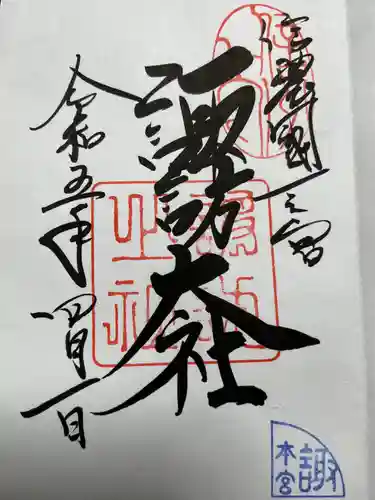 信濃國一之宮
諏訪大社
令和五年四月一日
諏
本宮